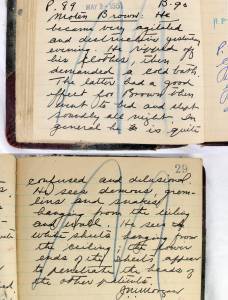 P. 89 B-90
MAY 3
Moten Brown: He
became very agitated
and destructive yesterday
evening. He ripped off
his clothes, then
demanded a cold bath.
The latter had a good
effect for Brown then
went to bed and slept
soundly all night. In
general he is quite
29
confused and delusional.
He sees demons, grem-
lins and snakes
hanging from the ceiling
and wall. He sees
white sheets hanging from
the ceiling; the lower
ends of the sheets appear
to penetrate the heads of
the other patients.